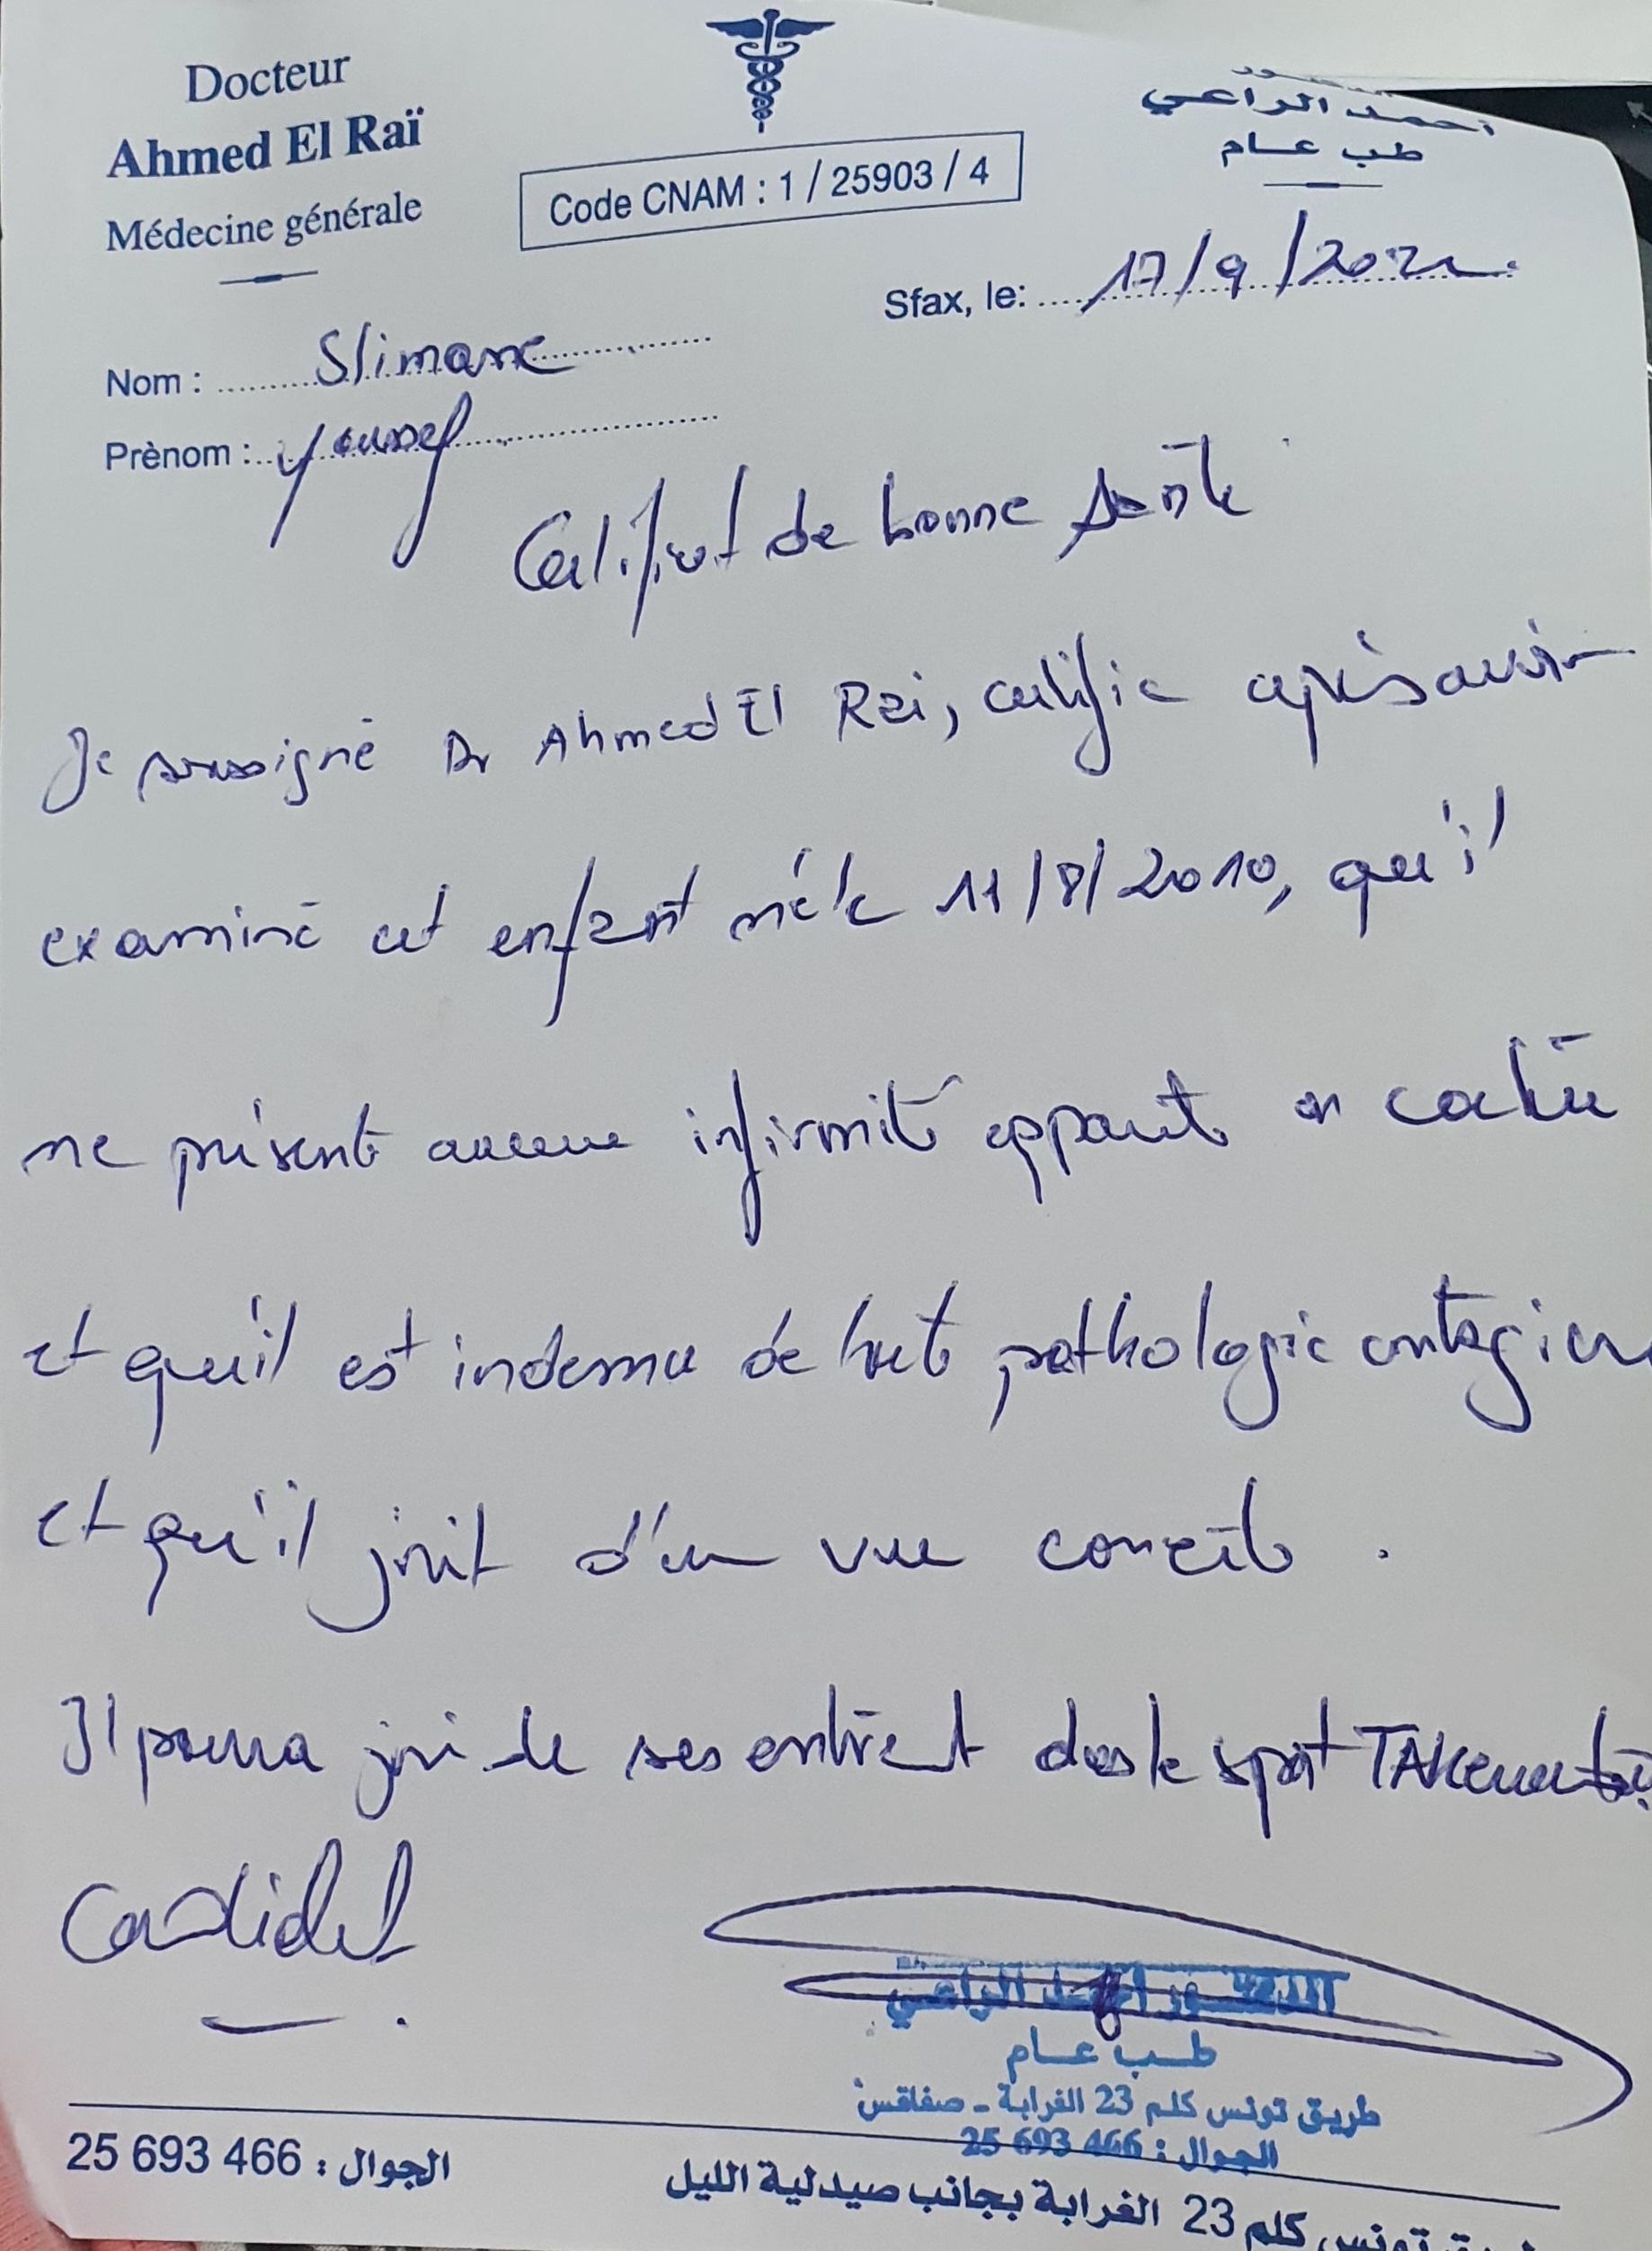 Docteur
Ahmed El Raï
Médecine générale
Code CNAM : 1 / 25903 / 4
أحمد الراعي
طب عام
Sfax, le: 17/9/2022
Nom : Slimane
Prènom : Youssef
Certificat de bonne santé
Je soussigné Dr Ahmed El Rai, certifie après avoir
examiné cet enfant né le 11/8/2010, qu'il
ne présente aucune infirmité apparente
et qu'il est indemne de toute pathologie contagieuse
et qu'il jouit d'une vue correcte.
Il pourra de ses dans le sport
الدكتور أحمد الراعي
طب عام
طريق تونس كلم 23 الغرابة - صفاقس
الجوال : 466 693 25
الجوال : 466 693 25
طريق تونس كلم 23 الغرابة بجانب صيدلية الليل